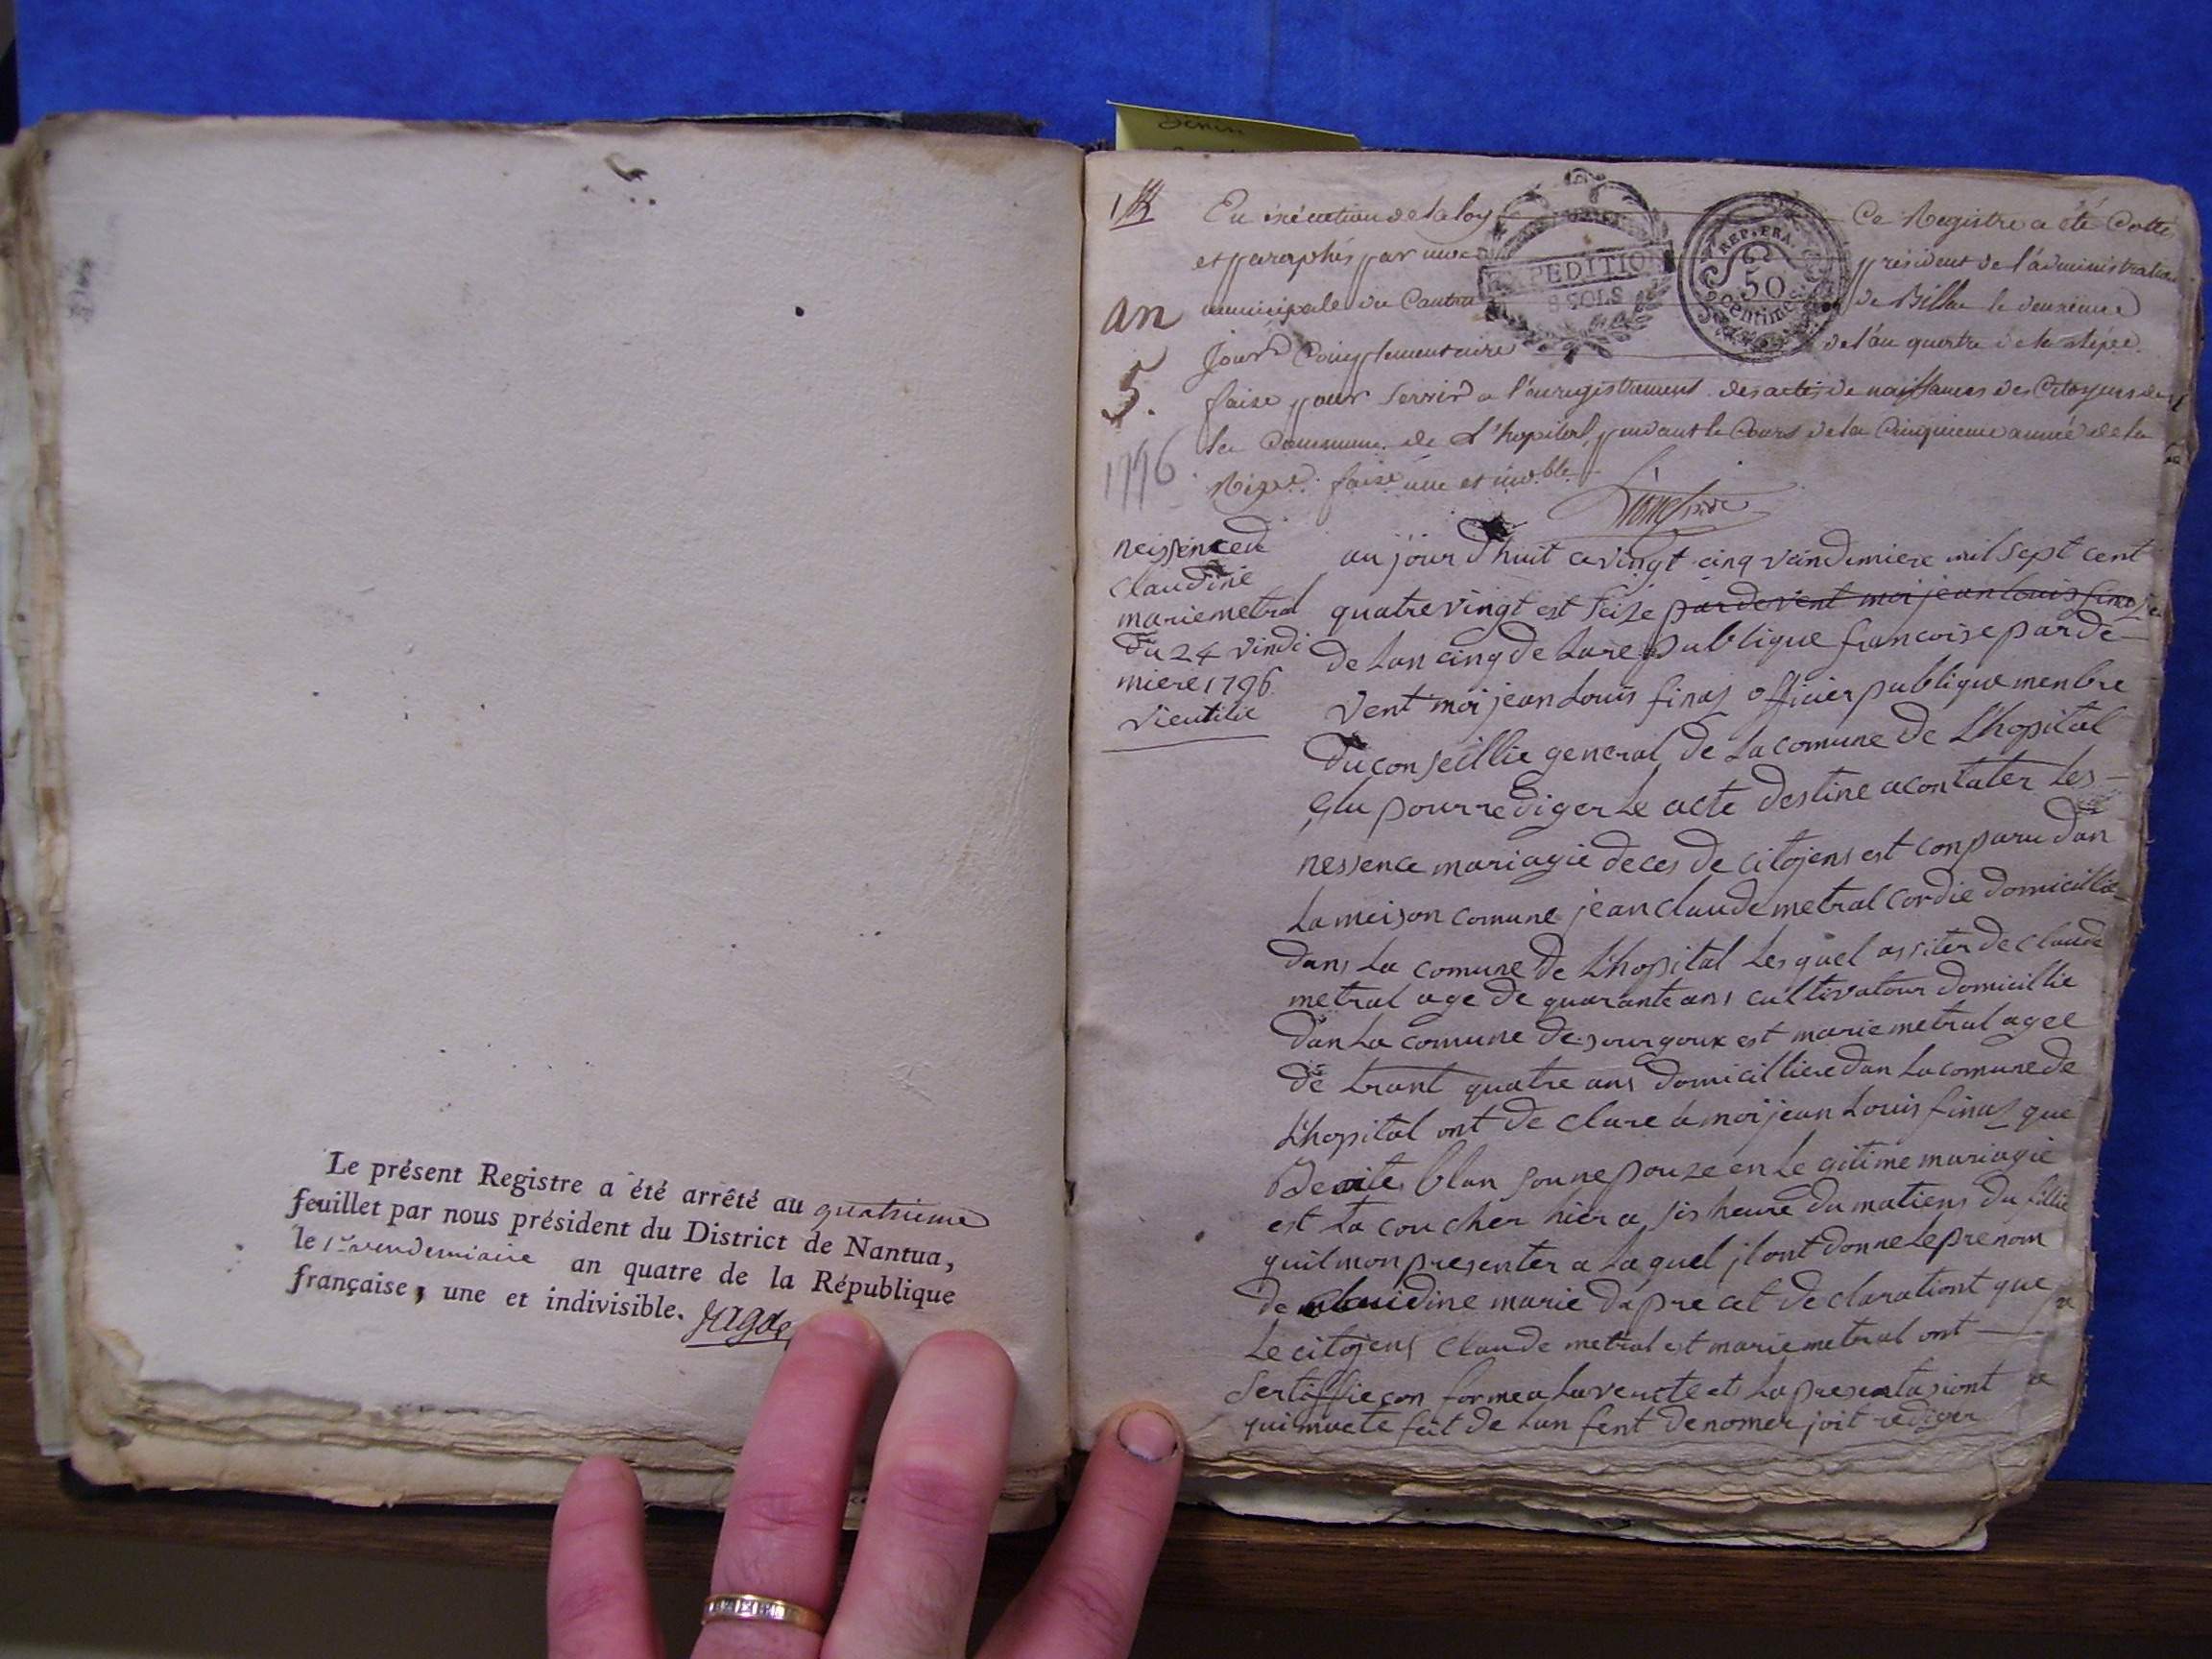 Le présent Registre a été arrêté au quatrieme
feuillet par nous président du District de Nantua,
le 1er vendemiaire an quatre de la République
française, une et indivisible.
En éxécution de la loy Ce Registre a été Cotté
et paraphés par président de l'administration
municipale du Canton de le deuxieme
Jour Complementaire de l'an quatre
faise pour Servir a l'enregistrement des actes de naissances des Citoyens de
la Commune de L'hopital pendant le Cours de la Cinquieme année de la
faise une et
EXPEDITION
8 SOLS
REP. FRA.
50
centimes
an
5.
1796
neissence d
claudine
marie metral
du 24 vindi
miere 1796
vieutilie
au jour d'huit ce vingt cinq vandimiere mil sept cent
quatre vingt est seize par devent moi jean louis finas
de Lan cinq de La re publique francoise par de
vent moi jean Louis finas officier publique menbre
du conseillie general de La comune de Lhopital
Elu pour rediger Le acte destine a contater Les
nessence mariagie deces de citojens est conparu dan
La meison comune jean claude metral cordie domicillie
dans La comune de Lhopital Les quel assiter de claude
metral age de quarante ans cultivatour domicillie
dan La comune de sourgoux est marie metral agee
de trant quatre ans domicilliere dan La comune de
Lhopital ont de clare a moi jean Louis finas que
blan sonnepouze en Le gitime mariagie
est La coucher hier a sis heure du matiens du fillie
quil mon presenter a La quel jl ont donne Le prenom
de claudine marie da pre cet de clarationt que
Le citojens claude metral est marie metral ont
Sertiffie con forme a La verite et La presentasiont
qui macte fait de Lan fent denomer joit rediger